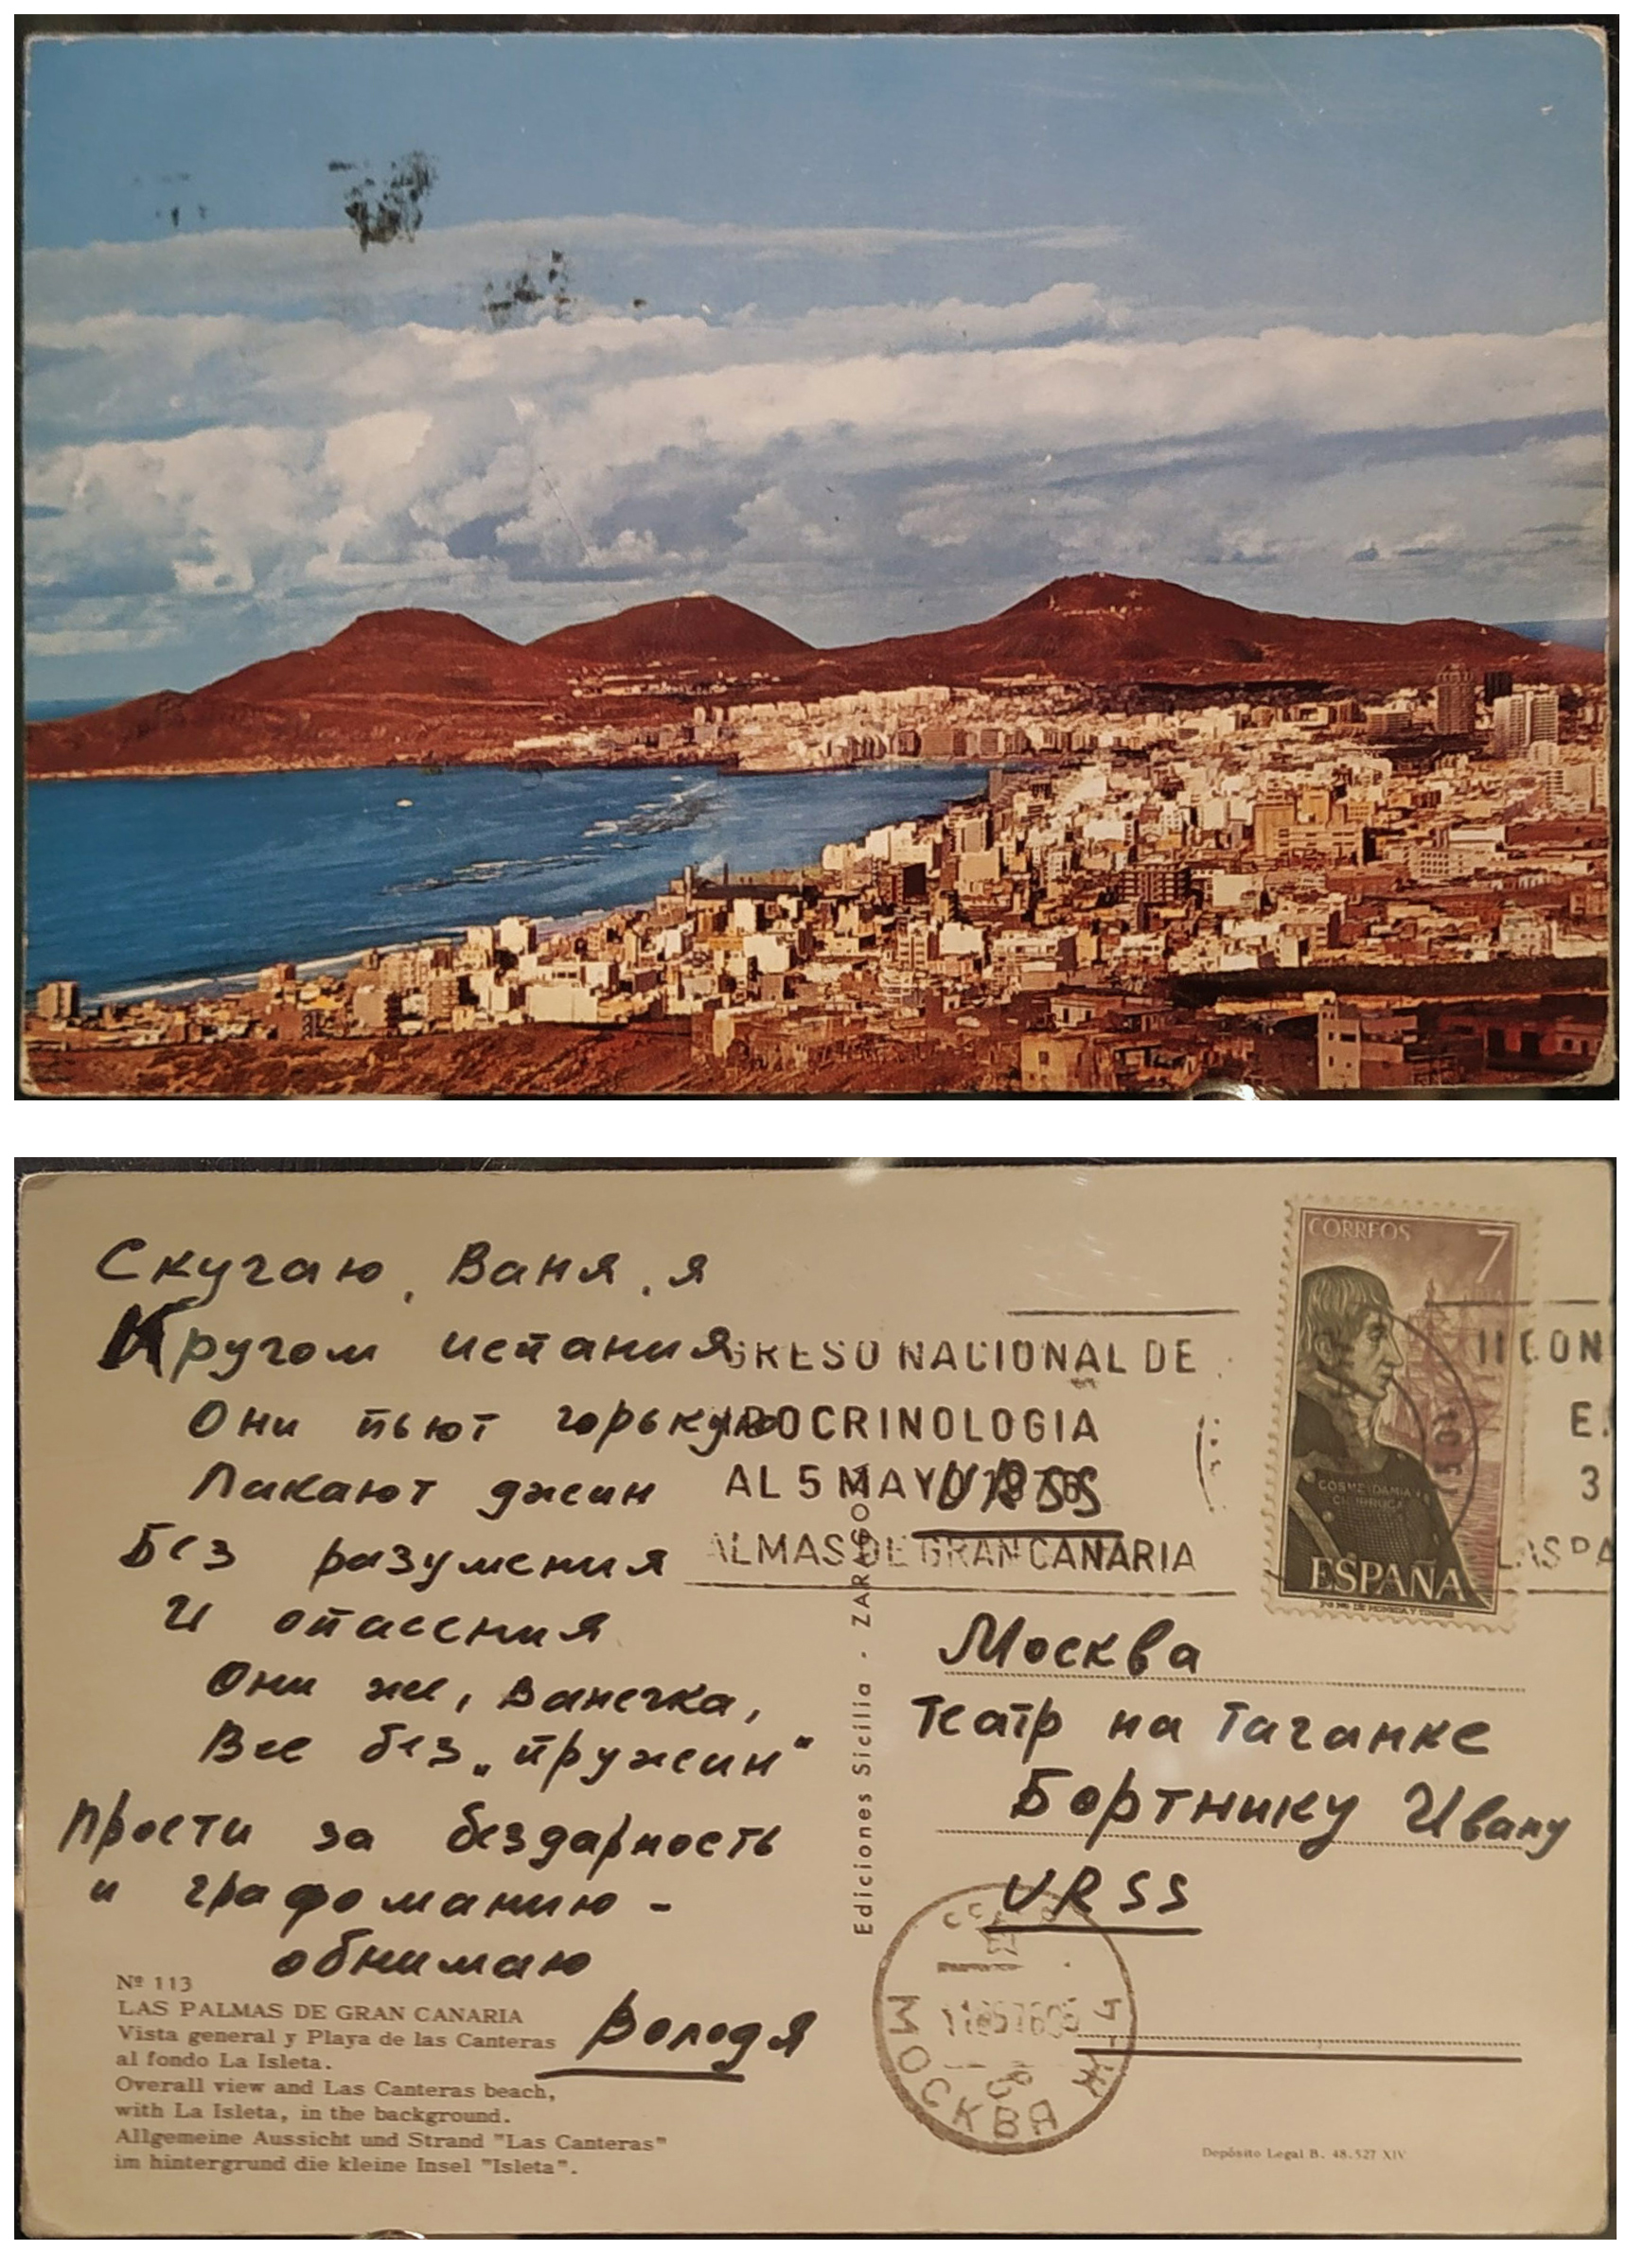 Скучаю, Ваня, я
Кругом испания
Они пьют горькую
Лакают джин
Без разумения
И опасения
Они же, Ванечка,
Все без „пружин“
Прости за бездарность
и графоманию -
обнимаю
Володя
Nº 113
LAS PALMAS DE GRAN CANARIA
Vista general y Playa de las Canteras
al fondo La Isleta.
Overall view and Las Canteras beach,
with La Isleta, in the background.
Allgemeine Aussicht und Strand "Las Canteras"
im hintergrund die kleine Insel "Isleta".
Ediciones Sicilia - ZARAGOZA
GRESO NACIONAL DE
DOCRINOLOGIA
AL 5 MAYO 1976
ALMAS DE GRAN CANARIA
URSS
CORREOS 7
COSME DAMIAN
CHURRUCA
ESPAÑA
II CON
E.
3
LAS PA
Москва
Театр на Таганке
Бортнику Ивану
URSS
МОСКВА
Depósito Legal B. 48.527 XIV